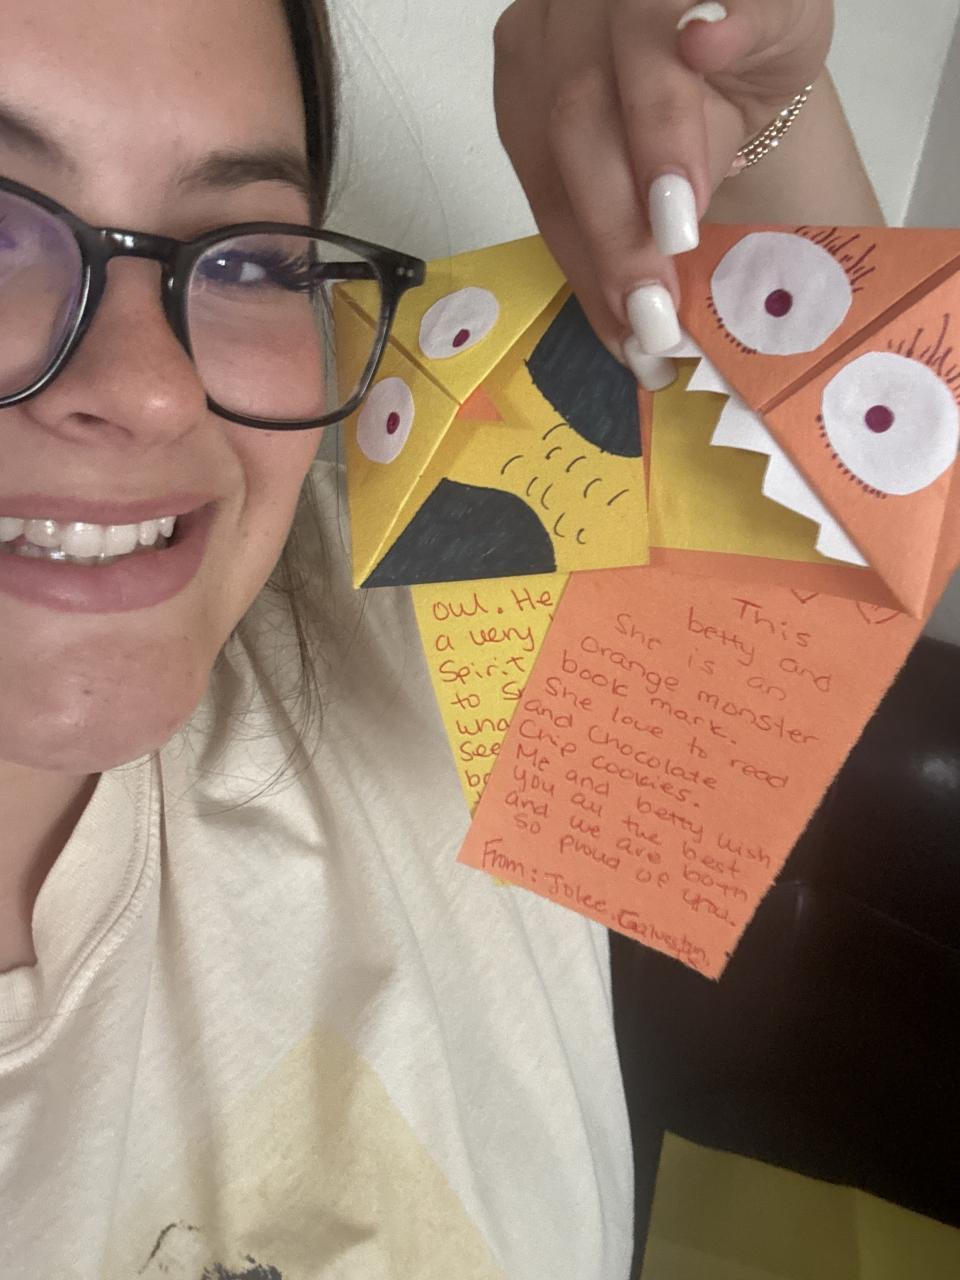 owl. He
a very
Spirit
to
wha
See
be
This
betty and
She is an
orange monster
book mark.
She love to read
and chocolate
Chip cookies.
Me and betty wish
you all the best
and we are both
so proud of you.
From: Jolee. Galveston,